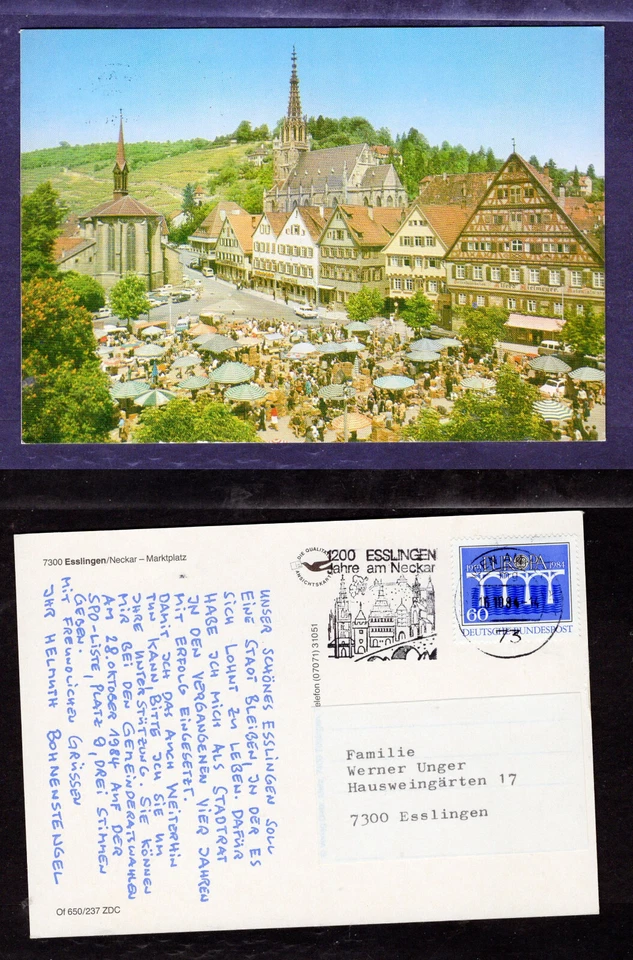 7300 Esslingen/Neckar – Marktplatz
DIE QUALITÄTS
ANSICHTSKARTE
1200 ESSLINGEN
Jahre am Neckar
1959 EUROPA 1984
60
DEUTSCHE BUNDESPOST
16.10.84-14
73
Telefon (07071) 31051
UNSER SCHÖNES ESSLINGEN SOLL
EINE STADT BLEIBEN, IN DER ES
SICH LOHNT ZU LEBEN. DAFÜR
HABE ICH MICH ALS STADTRAT
IN DEN VERGANGENEN VIER JAHREN
MIT ERFOLG EINGESETZT.
DAMIT ICH DAS AUCH WEITERHIN
TUN KANN BITTE ICH SIE UM
IHRE UNTERSTÜTZUNG. SIE KÖNNEN
MIR BEI DEN GEMEINDERATSWAHLEN
AM 28. OKTOBER 1984 AUF DER
SPD-LISTE, PLATZ 9, DREI STIMMEN
GEBEN.
MIT FREUNDLICHEN GRÜSSEN
IHR HELMUTH BOHNENSTENGEL
Familie
Werner Unger
Hausweingärten 17
7300 Esslingen
Of 650/237 ZDC